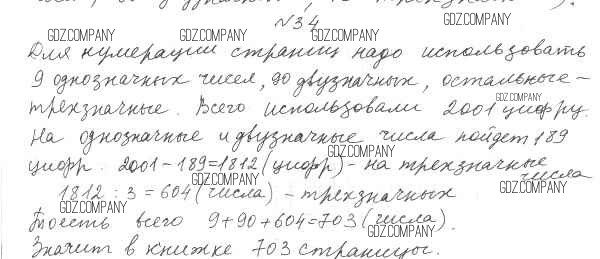 №34
Для нумерации страниц надо использовать
9 однозначных чисел, 90 двузначных, остальные –
трехзначные. Всего использовали 2001 цифру.
На однозначные и двузначные числа пойдет 189
цифр. 2001 – 189 = 1812 (цифр) – на трехзначные
числа
1812 : 3 = 604 (числа) – трехзначных
Тоесть всего 9 + 90 + 604 = 703 (числа).
Значит в книжке 703 страницы.
GDZ.COMPANY
GDZ.COMPANY
GDZ.COMPANY
GDZ.COMPANY
GDZ.COMPANY
GDZ.COMPANY
GDZ.COMPANY
GDZ.COMPANY
GDZ.COMPANY
GDZ.COMPANY